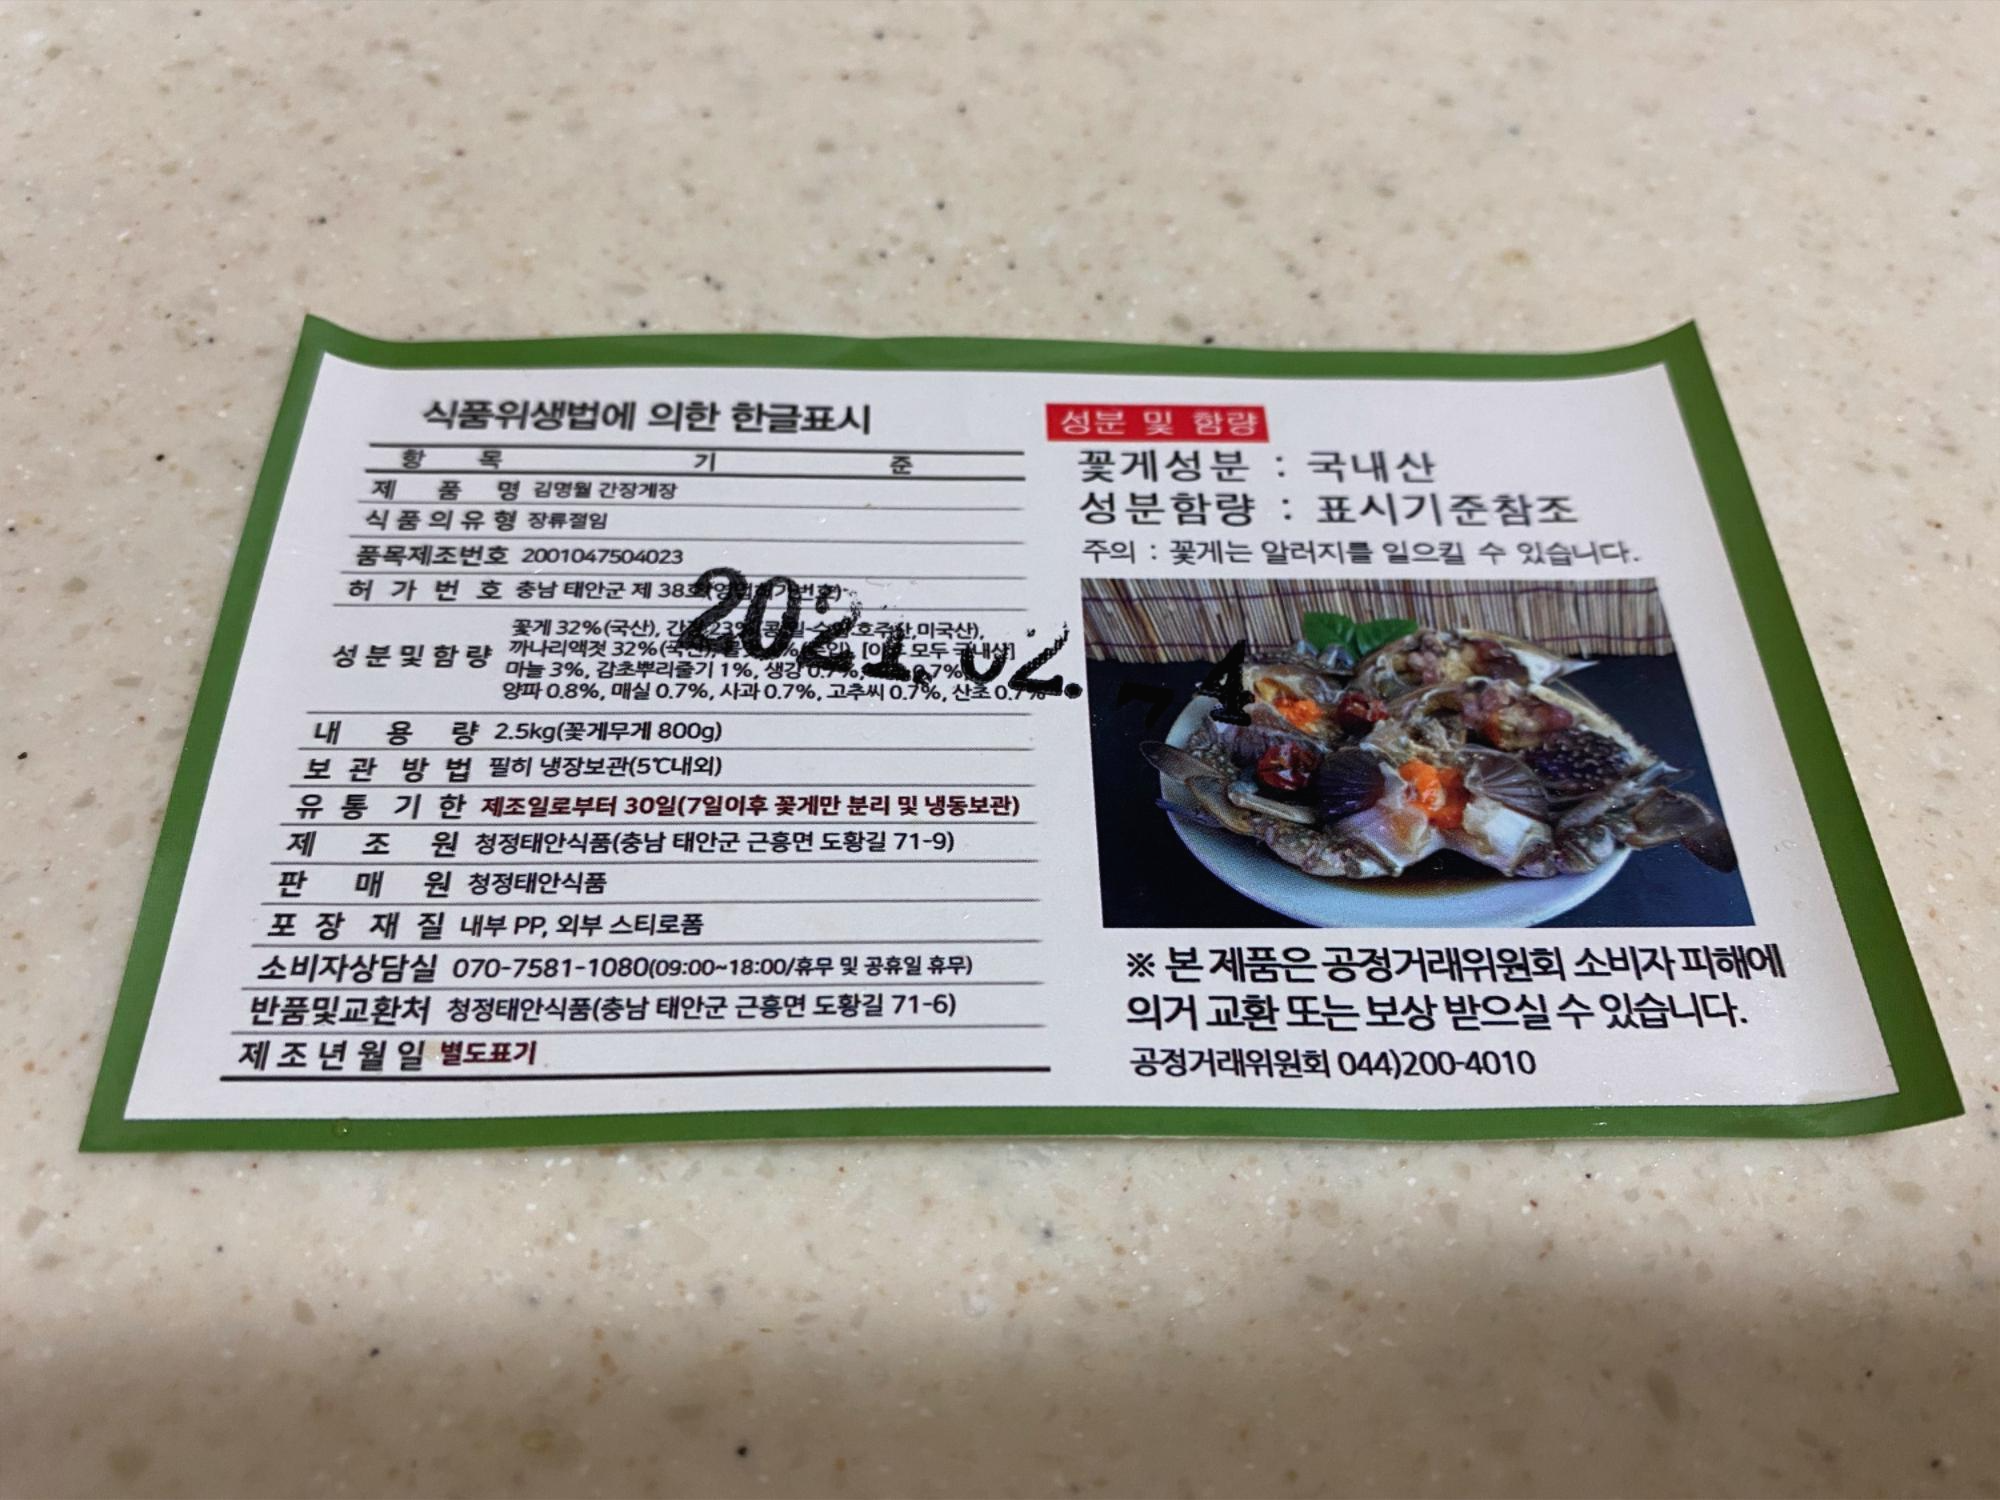 식품위생법에 의한 한글표시
항 목 기 준
제 품 명 김명월 간장게장
식품의유형 장류절임
품목제조번호 2001047504023
허 가 번 호 충남 태안군 제
꽃게 32%(국산),
성분및함량 까나리액젓 32%
마늘 3%, 감초뿌리줄기 1%, 생강
양파 0.8%, 매실 0.7%, 사과 0.7%, 고추씨 0.7%, 산초 0.7%
내 용 량 2.5kg(꽃게무게 800g)
보 관 방 법 필히 냉장보관(5℃내외)
유 통 기 한 제조일로부터 30일(7일이후 꽃게만 분리 및 냉동보관)
제 조 원 청정태안식품(충남 태안군 근흥면 도황길 71-9)
판 매 원 청정태안식품
포 장 재 질 내부 PP, 외부 스티로폼
소비자상담실 070-7581-1080(09:00~18:00/휴무 및 공휴일 휴무)
반품및교환처 청정태안식품(충남 태안군 근흥면 도황길 71-6)
제조년월일 별도표기
성분 및 함량
꽃게성분 : 국내산
성분함량 : 표시기준참조
주의 : 꽃게는 알러지를 일으킬 수 있습니다.
※ 본 제품은 공정거래위원회 소비자 피해에
의거 교환 또는 보상 받으실 수 있습니다.
공정거래위원회 044)200-4010